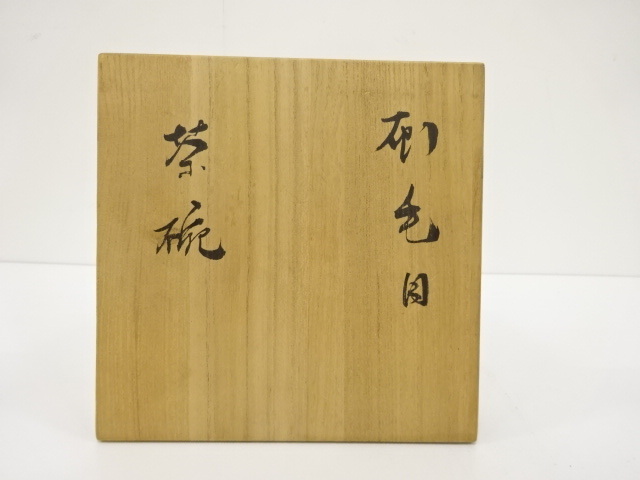 刷毛目
茶碗